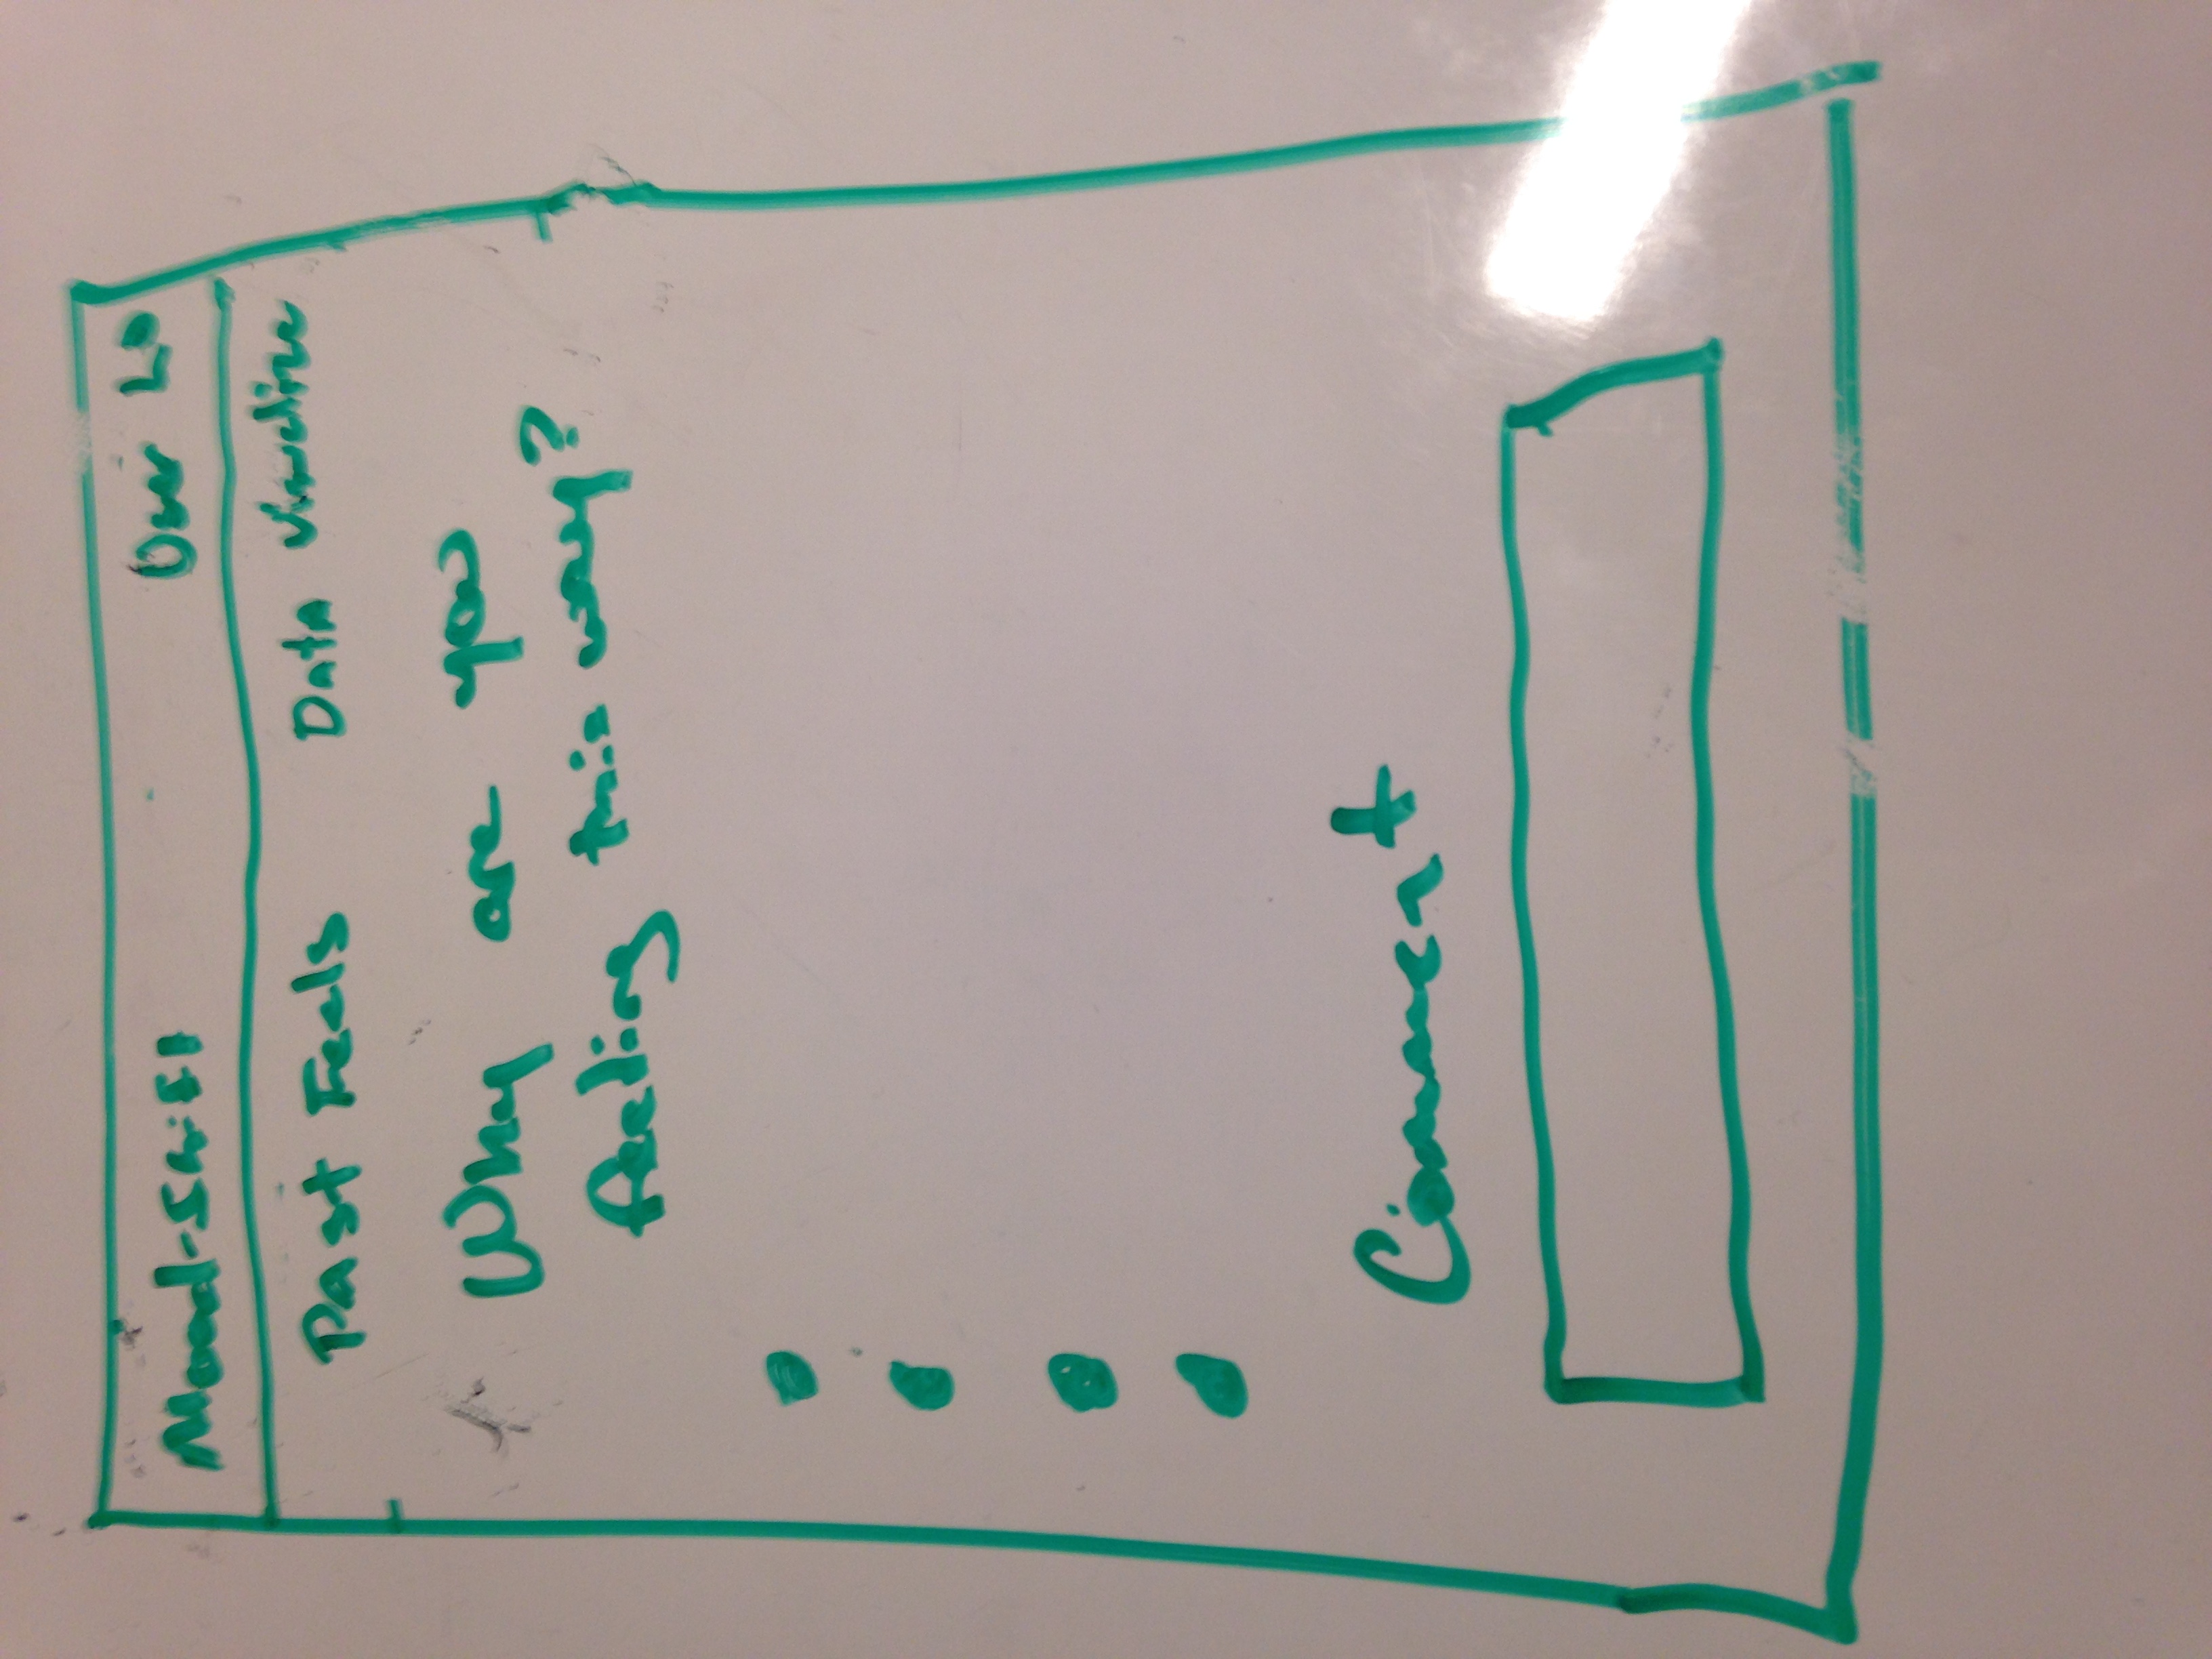 Mood-Shift User LO
Past Feels Data Visualize
Why are you
feeling this way?
Comment